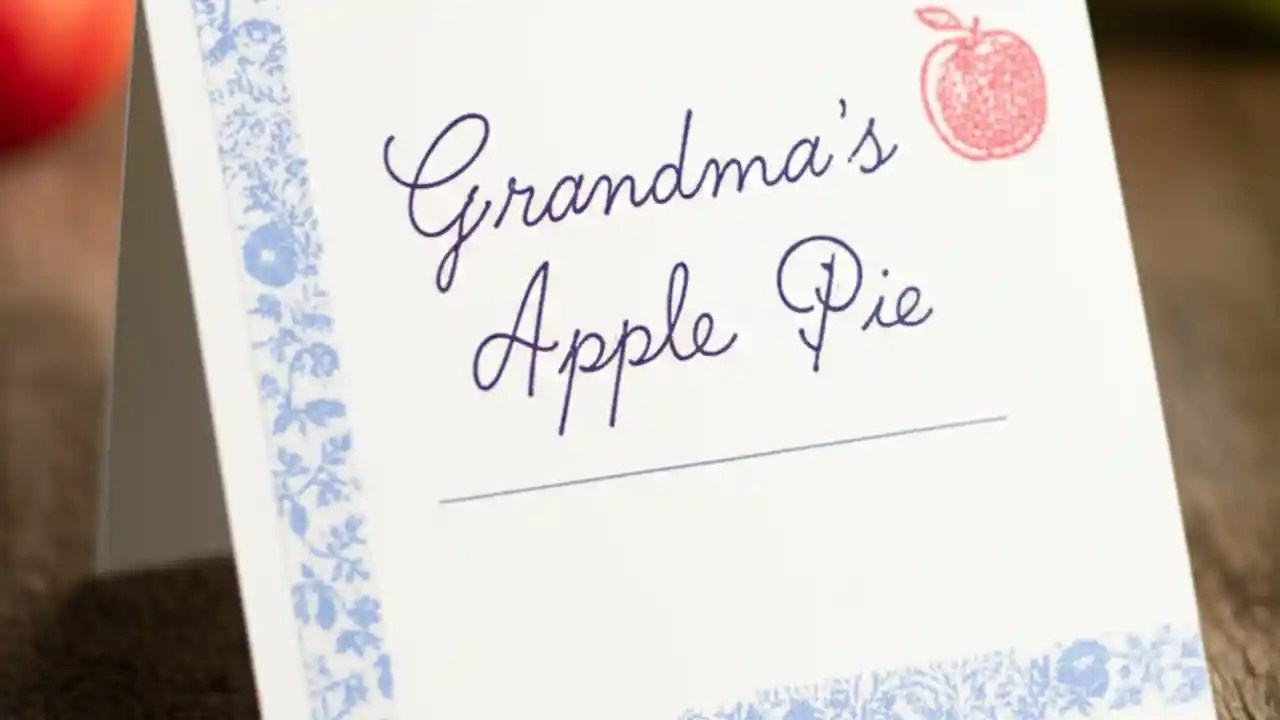 Grandma's
Apple Pie